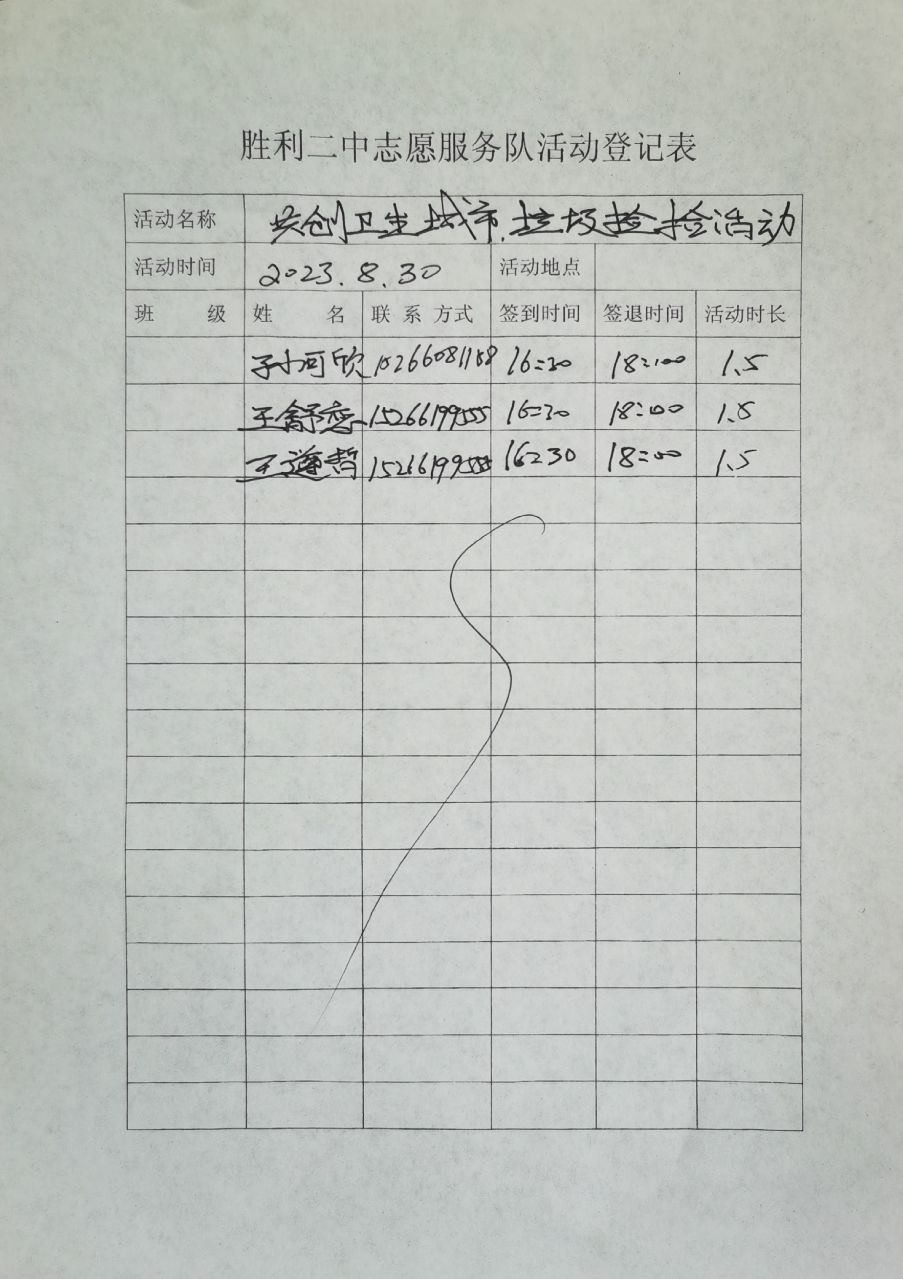 胜利二中志愿服务队活动登记表
活动名称 共创卫生城市.垃圾捡捡活动
活动时间 2023.8.30 活动地点
班 级 姓 名 联 系 方式 签到时间 签退时间 活动时长
15266081158 16:30 18:00 1.5
王舒 15266199555 16:30 18:00 1.5
王 哲 16:30 18:00 1.5